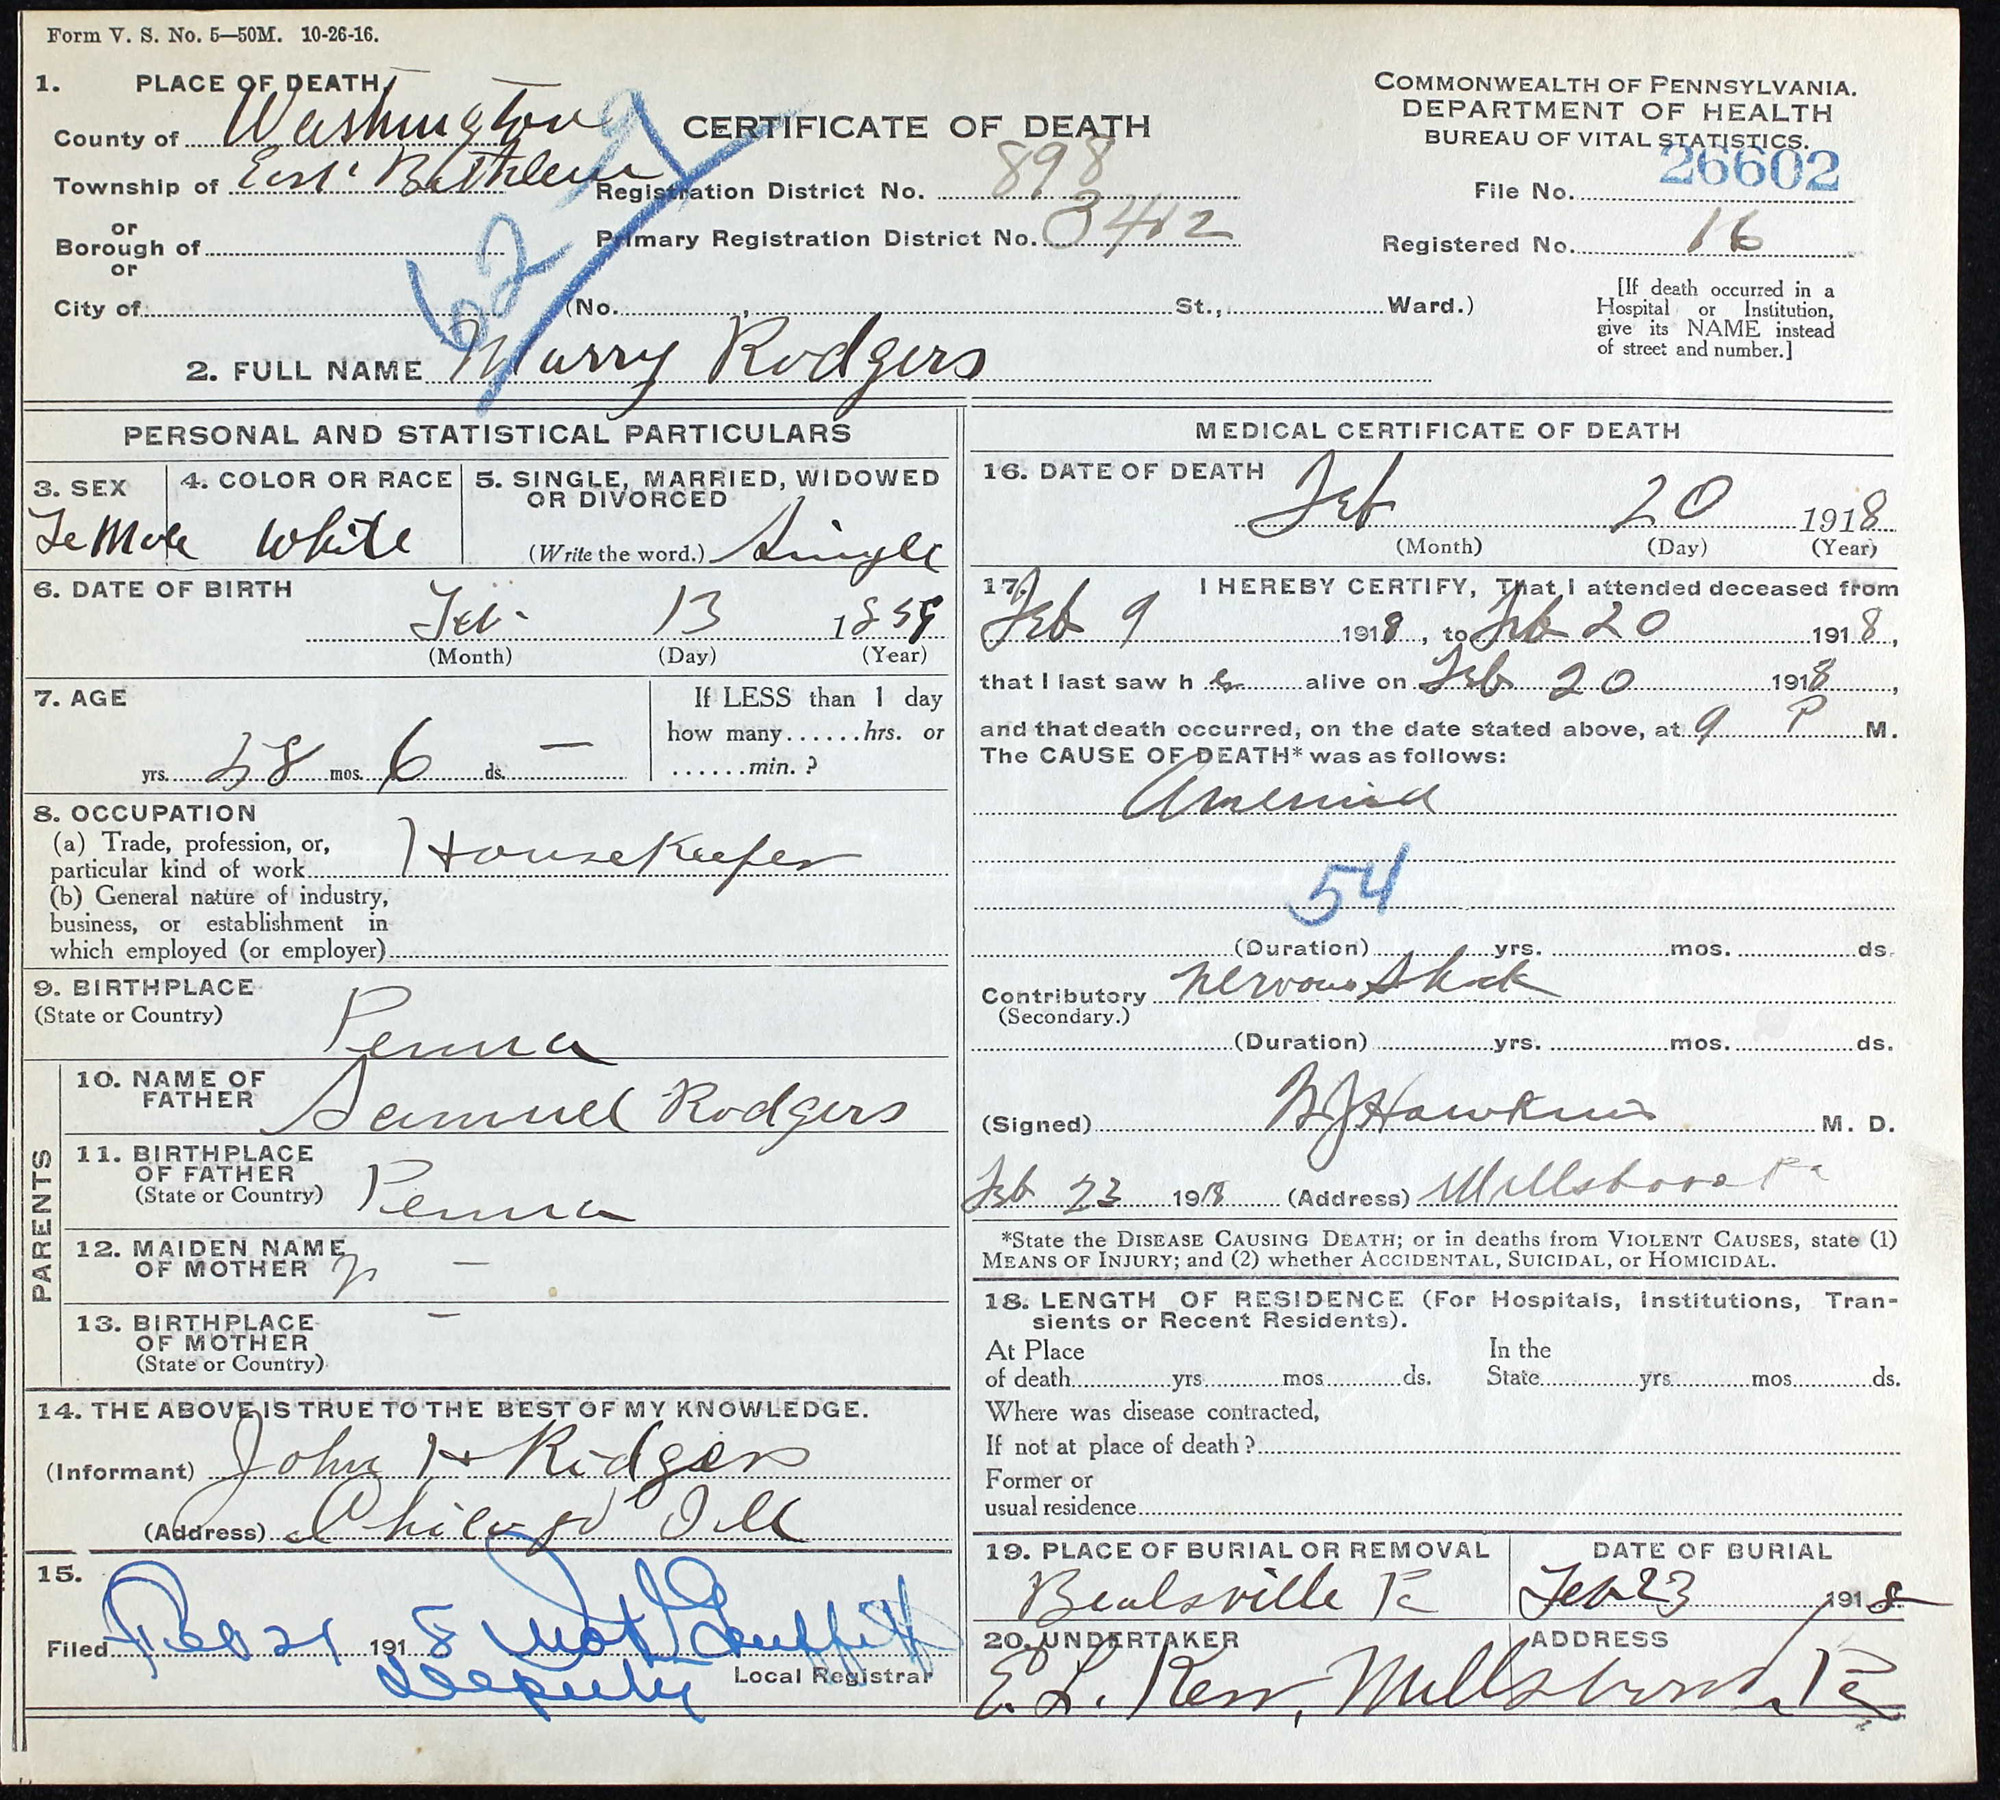 Form V. S. No. 5—50M. 10-26-16.
1. PLACE OF DEATH,
County of Washington
Township of East Bethlem
or
Borough of
or
City of
CERTIFICATE OF DEATH
Registration District No. 898
Primary Registration District No. 3412
(No. , St., Ward.)
COMMONWEALTH OF PENNSYLVANIA.
DEPARTMENT OF HEALTH
BUREAU OF VITAL STATISTICS.
26602
File No.
Registered No. 16
[If death occurred in a
Hospital or Institution,
give its NAME instead
of street and number.]
2. FULL NAME Murry Rodgers
PERSONAL AND STATISTICAL PARTICULARS
3. SEX
FeMale
4. COLOR OR RACE
White
5. SINGLE, MARRIED, WIDOWED
OR DIVORCED
(Write the word.) Single
6. DATE OF BIRTH
Feb. 13 1859
(Month) (Day) (Year)
7. AGE
yrs. 58 mos. 6 ds. —
If LESS than 1 day
how many......hrs. or
......min. ?
8. OCCUPATION
(a) Trade, profession, or,
particular kind of work Housekeeper
(b) General nature of industry,
business, or establishment in
which employed (or employer)
9. BIRTHPLACE
(State or Country)
Penna
PARENTS
10. NAME OF
FATHER Samuel Rodgers
11. BIRTHPLACE
OF FATHER
(State or Country) Penna
12. MAIDEN NAME
OF MOTHER —
13. BIRTHPLACE —
OF MOTHER
(State or Country)
14. THE ABOVE IS TRUE TO THE BEST OF MY KNOWLEDGE.
(Informant) John H Rodgers
(Address) Chicago Ill
15.
Filed Feb 21 1918 Griffith
deputy Local Registrar
MEDICAL CERTIFICATE OF DEATH
16. DATE OF DEATH
Feb 20 1918
(Month) (Day) (Year)
17. I HEREBY CERTIFY, That I attended deceased from
Feb 9 1918, to Feb 20 1918,
that I last saw h er alive on Feb 20 1918,
and that death occurred, on the date stated above, at 9 P M.
The CAUSE OF DEATH* was as follows:
54
(Duration) yrs. mos. ds.
Contributory nervous Shock
(Secondary.)
(Duration) yrs. mos. ds.
(Signed) Hawkins M. D.
Feb 23 1918 (Address) Millsboro Pa
*State the DISEASE CAUSING DEATH; or in deaths from VIOLENT CAUSES, state (1)
MEANS OF INJURY; and (2) whether ACCIDENTAL, SUICIDAL, or HOMICIDAL.
18. LENGTH OF RESIDENCE (For Hospitals, Institutions, Tran-
sients or Recent Residents).
At Place
of death yrs mos ds.
In the
State yrs mos ds.
Where was disease contracted,
If not at place of death ?
Former or
usual residence
19. PLACE OF BURIAL OR REMOVAL
Bealsville Pa
DATE OF BURIAL
Feb 23 1918
20. UNDERTAKER
E. L. Kerr,
ADDRESS
Millsboro, Pa